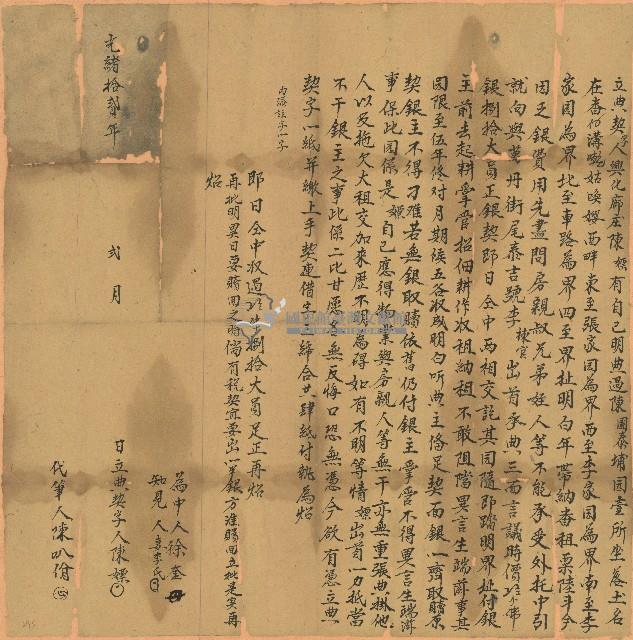 立典契字人興化廍庄陳嫖有自己明典過陳國泰埔园壹所坐落土名
在番仔溝崦姑喚嫖西畔東至張家园為界西至李家园為界南至李
家园為界北至車路為界四至界址明白年帶納番租粟陸斗今
因乏銀費用先盡問房親叔兄弟姪人等不能承受外托中引
就向與萬丹街尾泰吉號李 出首承典三面言議時價 佛
銀捌拾大員正銀契即日仝中両相交訖其园隨即踏明界址付銀
主前去起耕掌管招佃耕作收租納租不敢阻擋異言生端滋事其
园限至伍年終对月期候五谷收成明白听典主俻足契面銀一齊取贖原
契銀主不得刁难若無銀取贖依舊仍付銀主掌管不得異言生端滋
事保此园係是嫖自己應得 業與房親人等無干亦無重張典掛他
人以及拖欠大租交加來歷不明為碍如有不明等情嫖出首一力抵當
不干銀主之事此係二比甘愿 無反悔口恐無憑今欲有憑立典
契字一紙并繳上手契連借字 締合共肆紙付執為炤
內添註字一字
即日仝中收過 捌拾大員足正再炤
再批明異日要贖回之時倘有税契宜要出 銀方准贖回立批是实再
炤
為中人徐奎
知見人 李氏
日立典契字人陳嫖
代筆人陳
光緒拾貳年
弍月